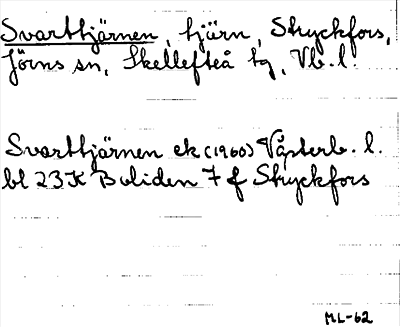 Svarttjärnen, tjärn, Stryckfors,
Jörns sn, Skellefteå tg, Vb. l.
Svarttjärnen ek (1960) Västerb. l.
bl 23 K Boliden 7 f Stryckfors
ML-62